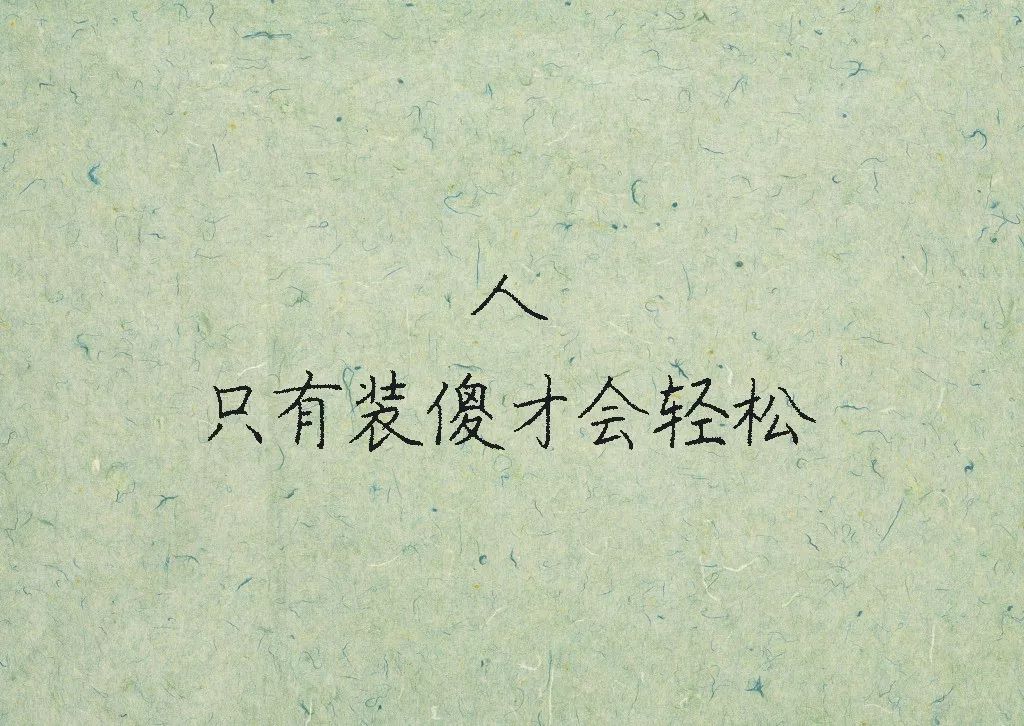 人
只有装傻才会轻松